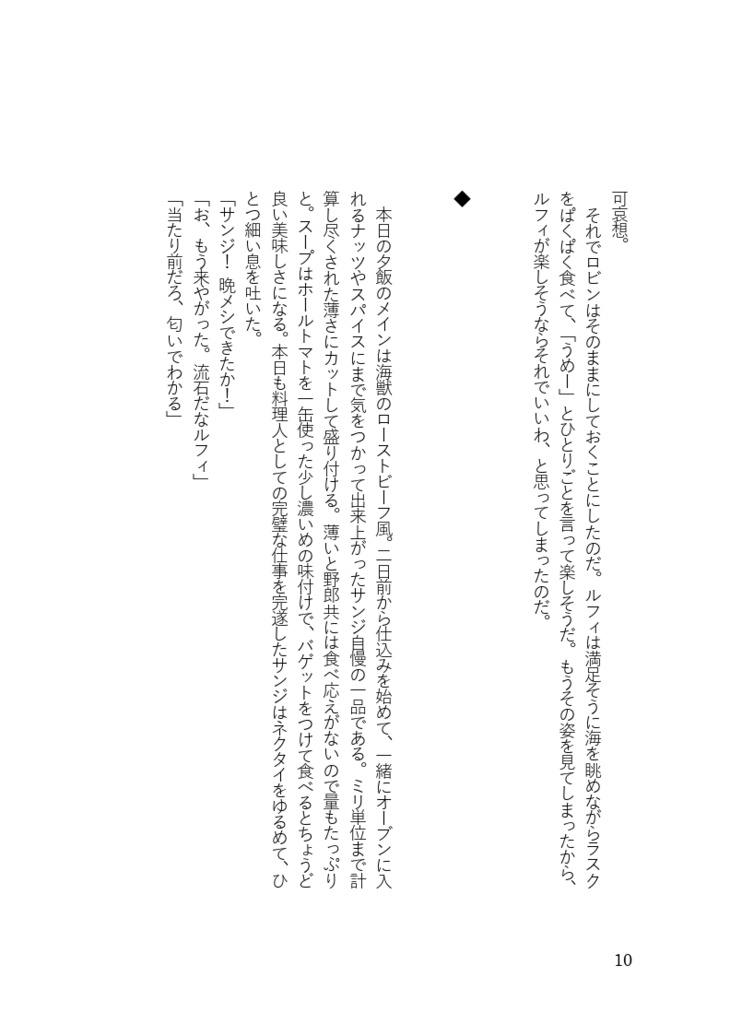 可哀想。
　それでロビンはそのままにしておくことにしたのだ。ルフィは満足そうに海を眺めながらラスク
をぱくぱく食べて、「うめー」とひとりごとを言って楽しそうだ。もうその姿を見てしまったから、
ルフィが楽しそうならそれでいいわ、と思ってしまったのだ。
◆
　本日の夕飯のメインは海獣のローストビーフ風。二日前から仕込みを始めて、一緒にオーブンに入
れるナッツやスパイスにまで気をつかって出来上がったサンジ自慢の一品である。ミリ単位まで計
算し尽くされた薄さにカットして盛り付ける。薄いと野郎共には食べ応えがないので量もたっぷり
と。スープはホールトマトを一缶使った少し濃いめの味付けで、バゲットをつけて食べるとちょうど
良い美味しさになる。本日も料理人としての完璧な仕事を完遂したサンジはネクタイをゆるめて、ひ
とつ細い息を吐いた。
「サンジ！　晩メシできたか！」
「お、もう来やがった。流石だなルフィ」
「当たり前だろ、匂いでわかる」
10